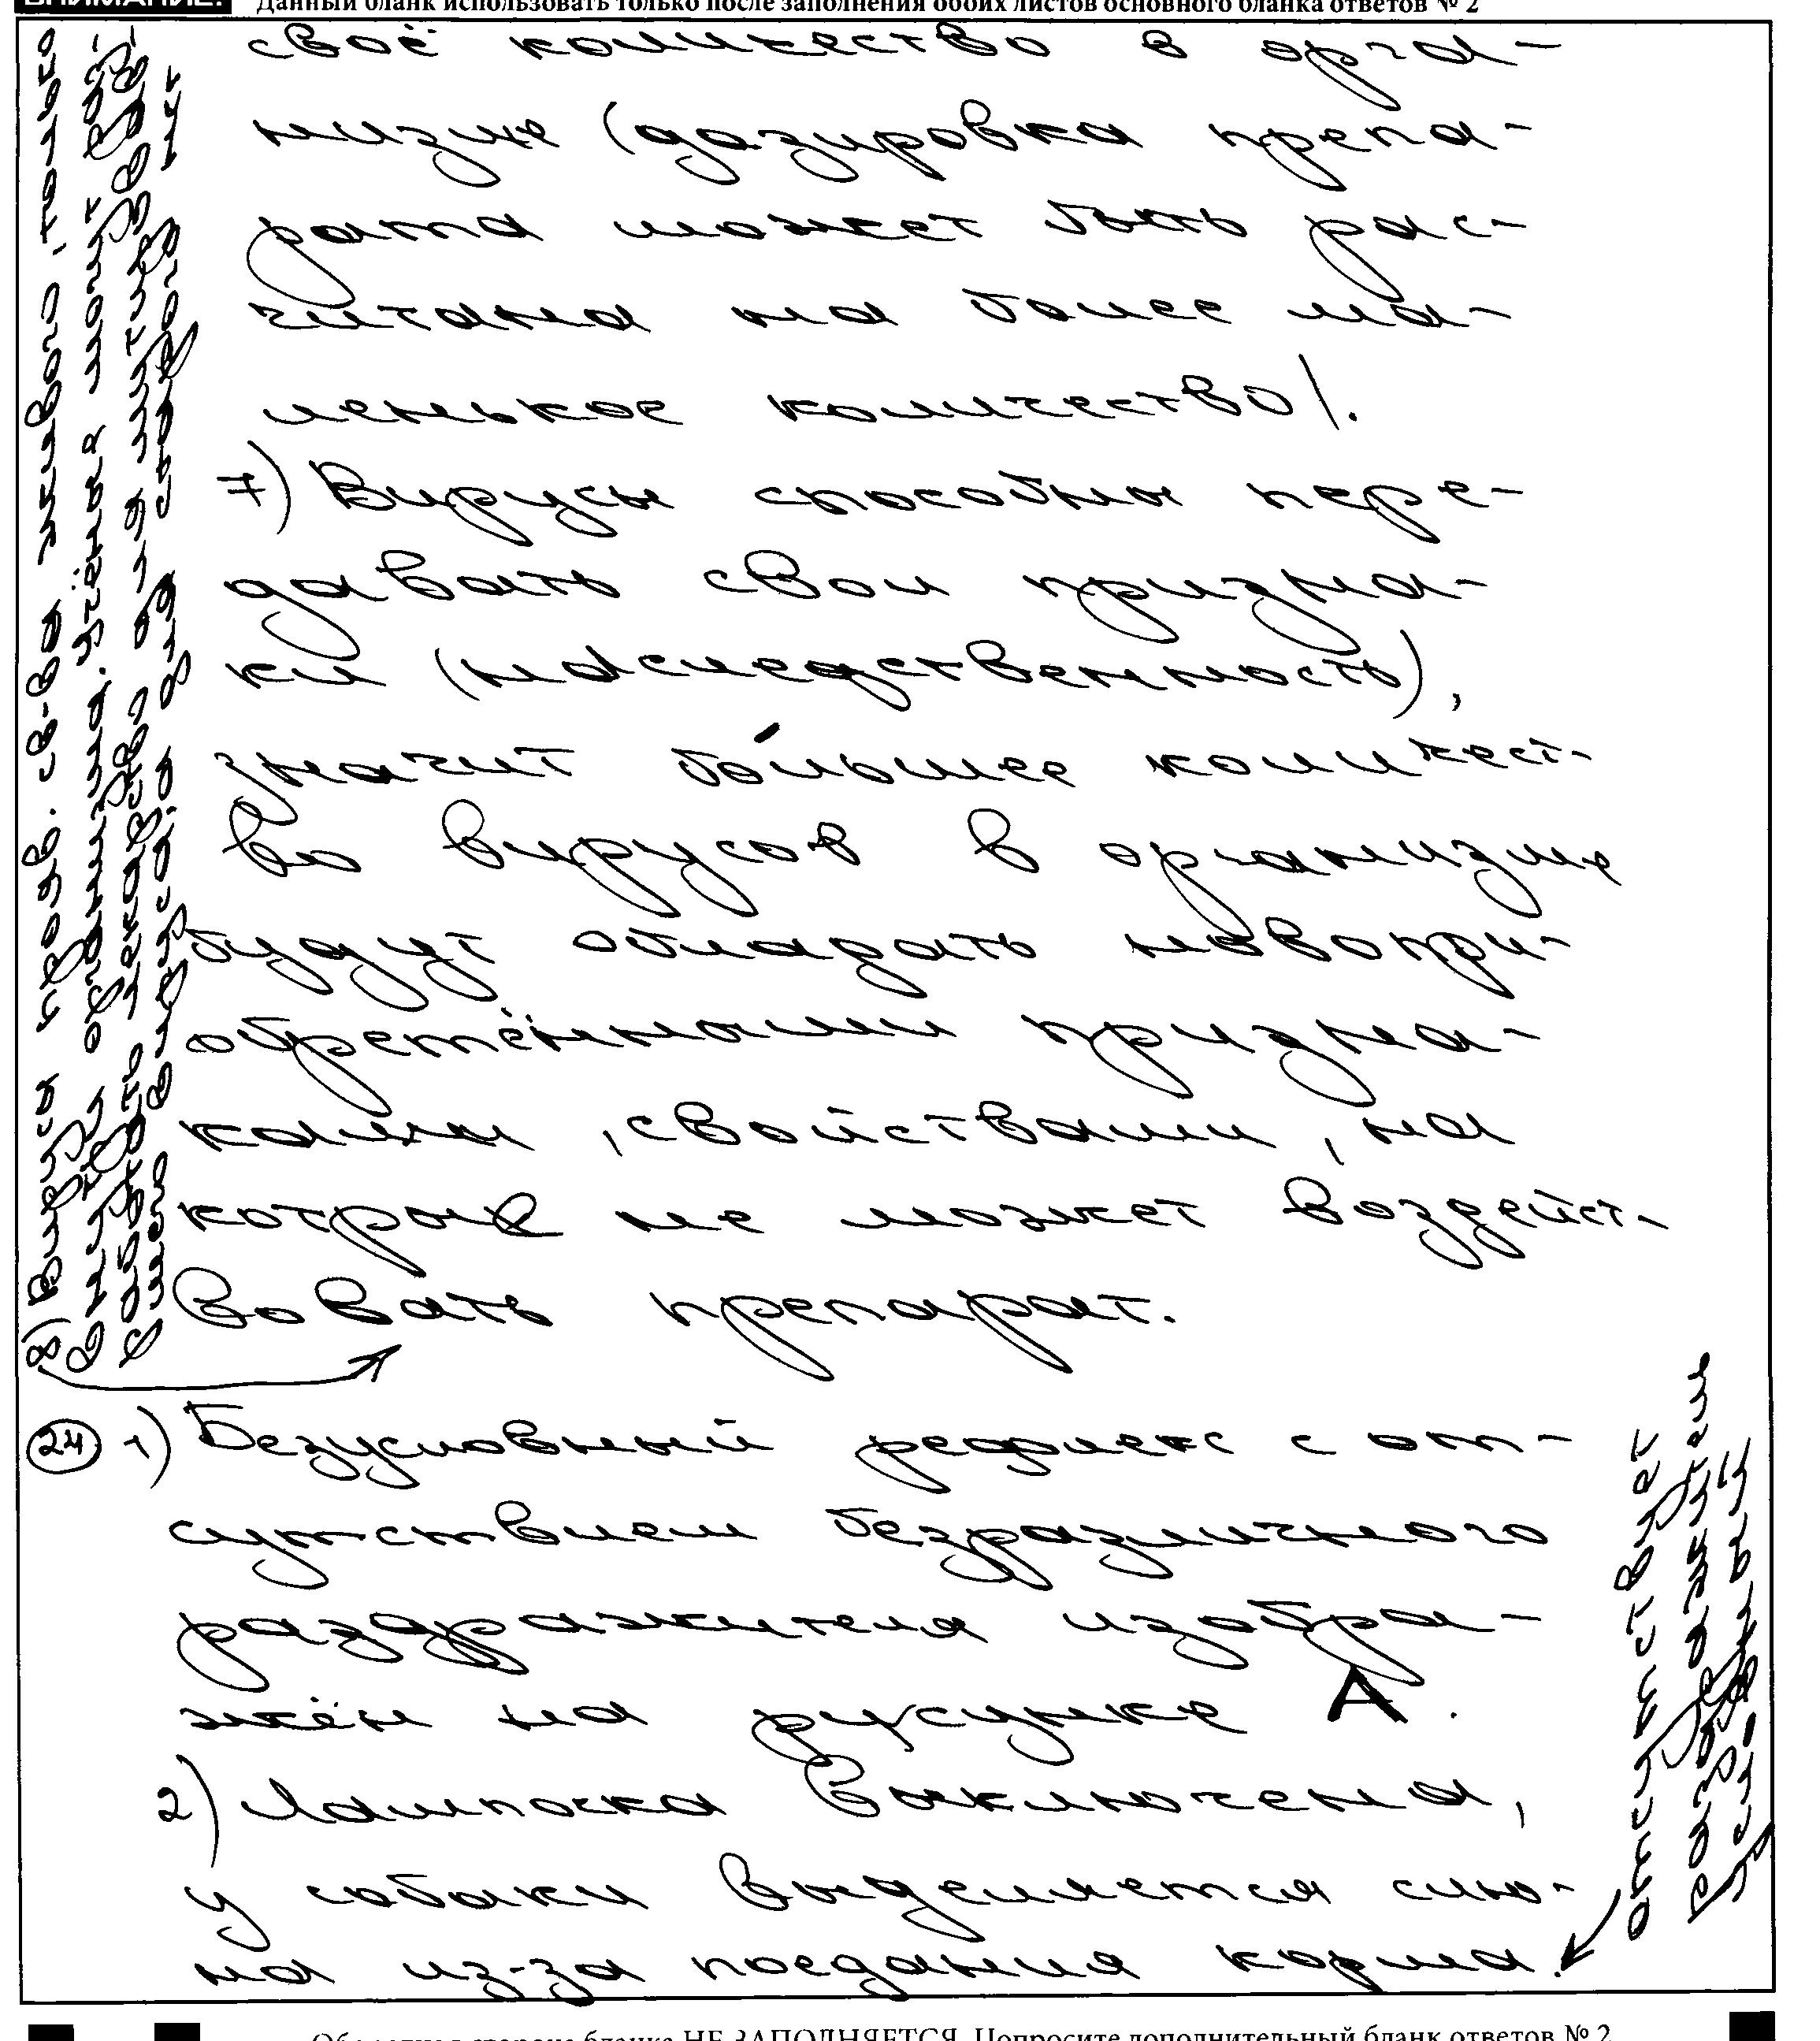 ВНИМАНИЕ! Данный бланк использовать только после заполнения обоих листов основного бланка ответов № 2
своё количество в орга-
низме (дозировка препа-
рата может быть рас-
читана на более ма-
ленькое количество).
7) Вирусы способны пере-
давать свои призна-
ки (наследственность),
значит бо́льшее количест-
во вирусов в организме
будут обладать новопри-
обретёнными призна-
ками, свойствами, на
котрые не может воздейст-
вовать препарат.
8) Вирусы прояв. св-ва живого, только
внутри организма. Учёные могут раз-
работать лекарство для
вируса;
24 1) Безусловный рефлекс с от-
сутствием безразличного
раздражителя изобра-
жён на рисунке А.
2) Лампочка выключена,
у собаки выделяется слю-
на из-за поедания корма.
отсутствует
раздражитель
условный
Оборотная сторона бланка НЕ ЗАПОЛНЯЕТСЯ. Попросите дополнительный бланк ответов № 2